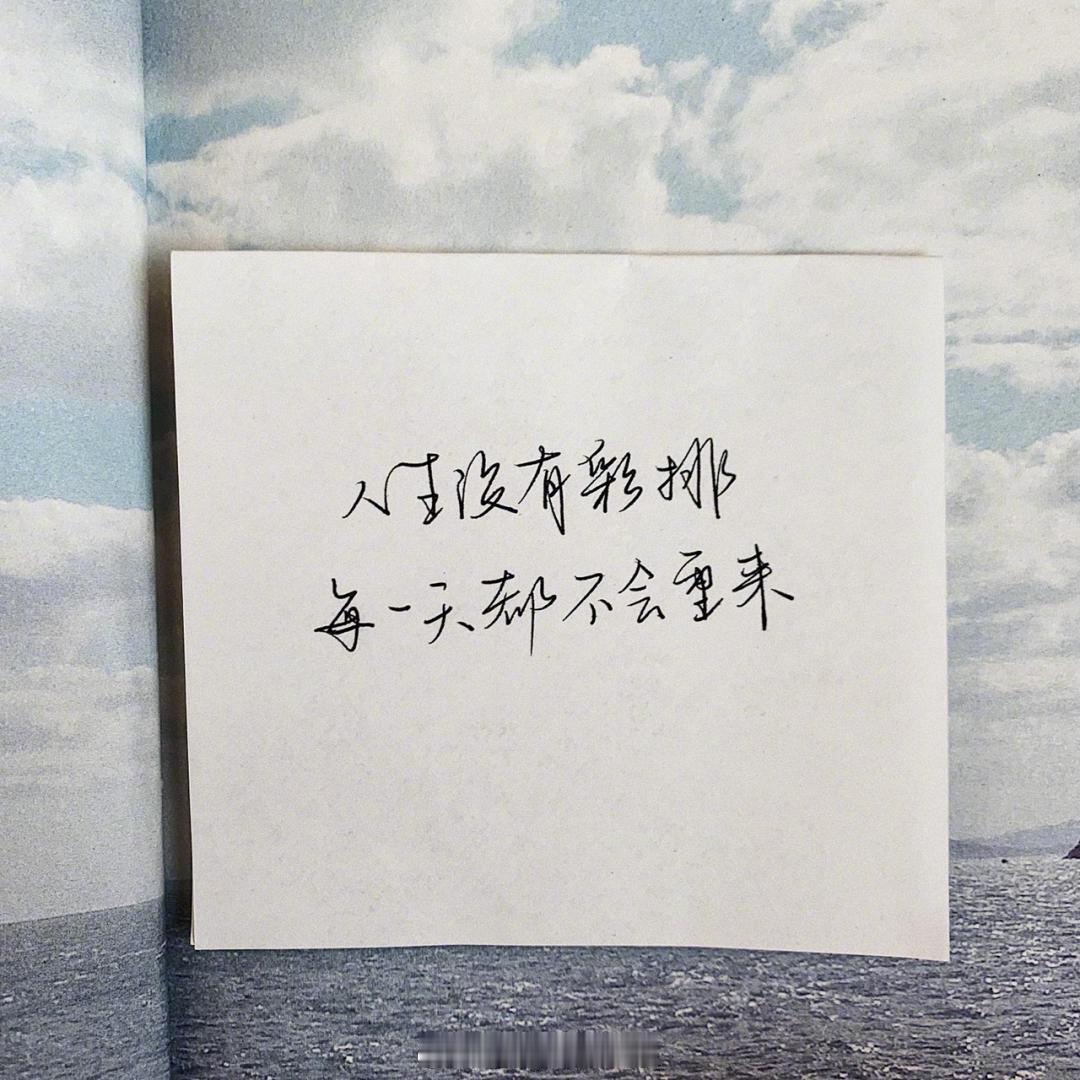 人生没有彩排
每一天都不会重来